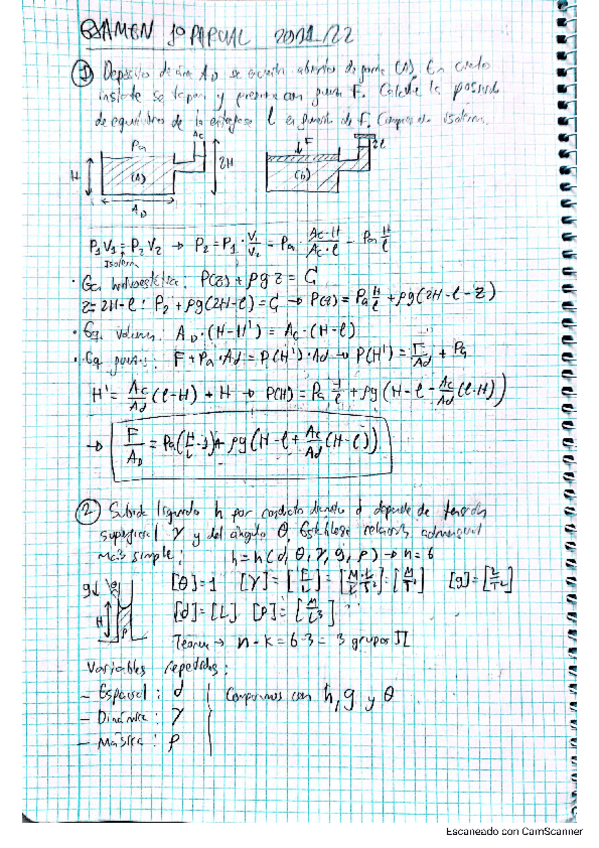 EXAMEN 1º PARCIAL 2021/22
① Deposito de área A_D se encuentra abierto (1). En cierto
instante se tapan y presiona con fuerza F. Calcule la posición
de equilibrio de la interfase l en función de F. Compresión isoterma.
Pa Ac H (A) 2H A_D F (b) l
P₁V₁ = P₂V₂ → P₂ = P₁ · V/V₂ = Pa · Ac·H/Ac·l = Pa H/l
Isoterma
· Ec. hidrostática: P(z) + ρgz = C
z = 2H-l : P₂ + ρg(2H-l) = C → P(z) = Pa H/l + ρg(2H-l-z)
· Eq. volumen: A_D·(H-H') = Ac·(H-l)
· Eq. : F + Pa·Ad = P(H')·Ad → P(H') = F/Ad + Pa
H' = Ac/Ad (l-H) + H → P(H) = Pa H/l + ρg(H-l-Ac/Ad(l-H))
→ F/A_D = Pa(H/l -1) + ρg(H-l+Ac/Ad(H-l))
② Subida líquido h por conducto diametro d depende de tensión
superficial γ y del ángulo θ. Establezca relación adimensional
más simple: h = h(d, θ, γ, g, ρ) → n = 6
g H ρ [θ] = 1 [γ] = [F/L] = [M·L/L·T²] = [M/T²] [g] = [L/T²]
[d] = [L] [ρ] = [M/L³]
Teorema → n-k = 6-3 = 3 grupos Π
Variables repetidas:
- Espacial: d
- Dinámica: γ
- Másica: ρ
Componemos con h, g y θ
Escaneado con CamScanner